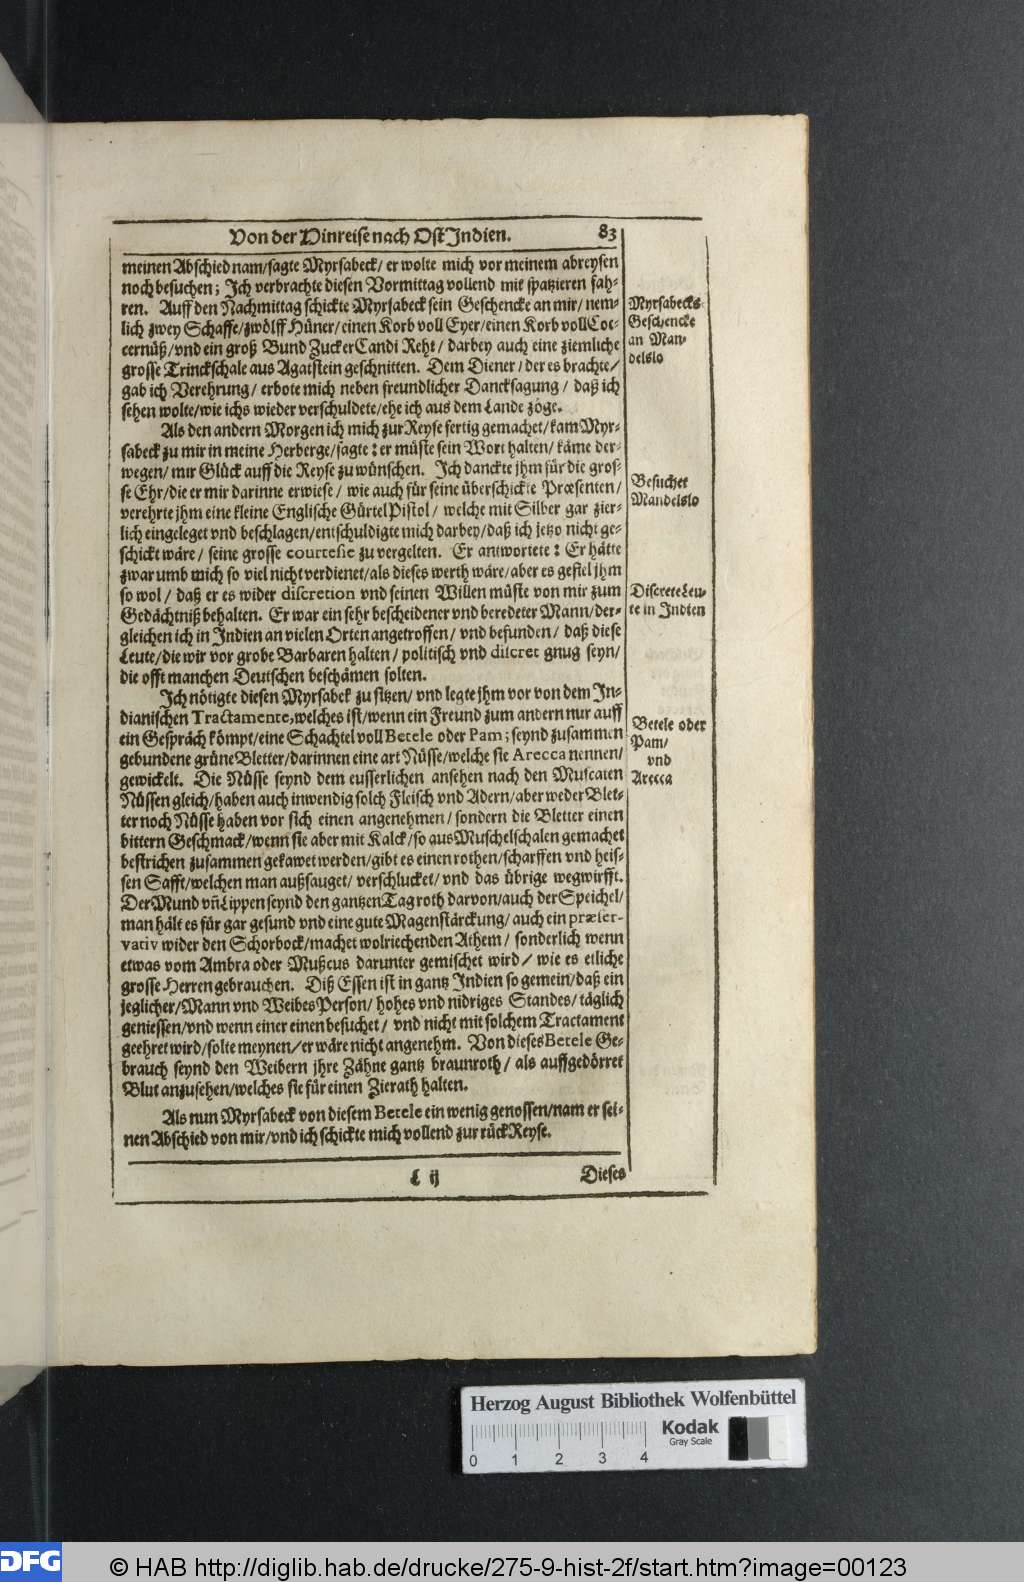 Von der Hinreise nach Ost Indien. 83
meinen Abschied nam/sagte Myrsabeck/ er wolte mich vor meinem abreysen
noch besuchen; Ich verbrachte diesen Vormittag vollend mit spatzieren fah-
ren. Auff den Nachmittag schickte Myrsabeck sein Geschencke an mir/ nem-
lich zwey Schaffe/zwölff Hüner/einen Korb voll Eyer/einen Korb voll Coc-
cernüß/vnd ein groß Bund ZuckerCandi Reht/ darbey auch eine ziemliche
grosse Trinckschale aus Agatstein geschnitten. Dem Diener/der es brachte/
gab ich Verehrung/ erbote mich neben freundlicher Dancksagung/ daß ich
sehen wolte/wie ichs wieder verschuldete/ehe ich aus dem Lande zöge.
Als den andern Morgen ich mich zur Reyse fertig gemachet/kam Myr-
sabeck zu mir in meine Herberge/sagte: er müste sein Wort halten/ käme der-
wegen/ mir Glück auff die Reyse zu wünschen. Ich danckte jhm für die gros-
se Ehr/die er mir darinne erwiese/ wie auch für seine überschickte Præsenten/
verehrte jhm eine kleine Englische GürtelPistol/ welche mit Silber gar zier-
lich eingeleget vnd beschlagen/entschuldigte mich darbey/daß ich jetzo nicht ge-
schickt wäre/ seine grosse courtesie zu vergelten. Er antwortete: Er hätte
zwar umb mich so viel nicht verdienet/als dieses werth wäre/aber es gefiel jhm
so wol/ daß er es wider discretion vnd seinen Willen müste von mir zum
Gedächtniß behalten. Er war ein sehr bescheidener vnd beredeter Mann/der-
gleichen ich in Indien an vielen Orten angetroffen/ vnd befunden/ daß diese
Leute/die wir vor grobe Barbaren halten/ politisch vnd discret gnug seyn/
die offt manchen Deutschen beschämen solten.
Ich nötigte diesen Myrsabek zu sitzen/ vnd legte jhm vor von dem In-
dianischen Tractamente,welches ist/wenn ein Freund zum andern nur auff
ein Gespräch kömpt/eine Schachtel voll Betele oder Pam; seynd zusammen
gebundene grüne Bletter/darinnen eine art Nüsse/welche sie Arecca nennen/
gewickelt. Die Nüsse seynd dem eusserlichen ansehen nach den Muscaten
Nüssen gleich/haben auch inwendig solch Fleisch vnd Adern/aber weder Blet-
ter noch Nüsse haben vor sich einen angenehmen/ sondern die Bletter einen
bittern Geschmack/wenn sie aber mit Kalck/so aus Muschelschalen gemachet
bestrichen zusammen gekawet werden/gibt es einen rothen/scharffen vnd heis-
sen Safft/welchen man außsauget/ verschlucket/ vnd das übrige wegwirfft.
Der Mund vñ Lippen seynd den gantzen Tag roth darvon/auch der Speichel/
man hält es für gar gesund vnd eine gute Magenstärckung/ auch ein præser-
vativ wider den Schorbock/machet wolriechenden Athem/ sonderlich wenn
etwas vom Ambra oder Mußcus darunter gemischet wird/ wie es etliche
grosse Herren gebrauchen. Diß Essen ist in gantz Indien so gemein/daß ein
jeglicher/Mann vnd WeibesPerson/ hohes vnd nidriges Standes/ täglich
geniessen/vnd wenn einer einen besuchet/ vnd nicht mit solchem Tractament
geehret wird/solte meynen/er wäre nicht angenehm. Von dieses Betele Ge-
brauch seynd den Weibern jhre Zähne gantz braunroth/ als auffgedörret
Blut anzusehen/welches sie für einen Zierath halten.
Als nun Myrsabeck von diesem Betele ein wenig genossen/nam er sei-
nen Abschied von mir/vnd ich schickte mich vollend zur rückReyse.
L ij Dieses
Myrsabecks
Geschencke
an Man-
delslo
Besuchet
Mandelslo
Discrete Leu-
te in Indien
Betele oder
Pam/
vnd
Arecca
Herzog August Bibliothek Wolfenbüttel
Kodak
Gray Scale
0 1 2 3 4
DFG © HAB http://diglib.hab.de/drucke/275-9-hist-2f/start.htm?image=00123